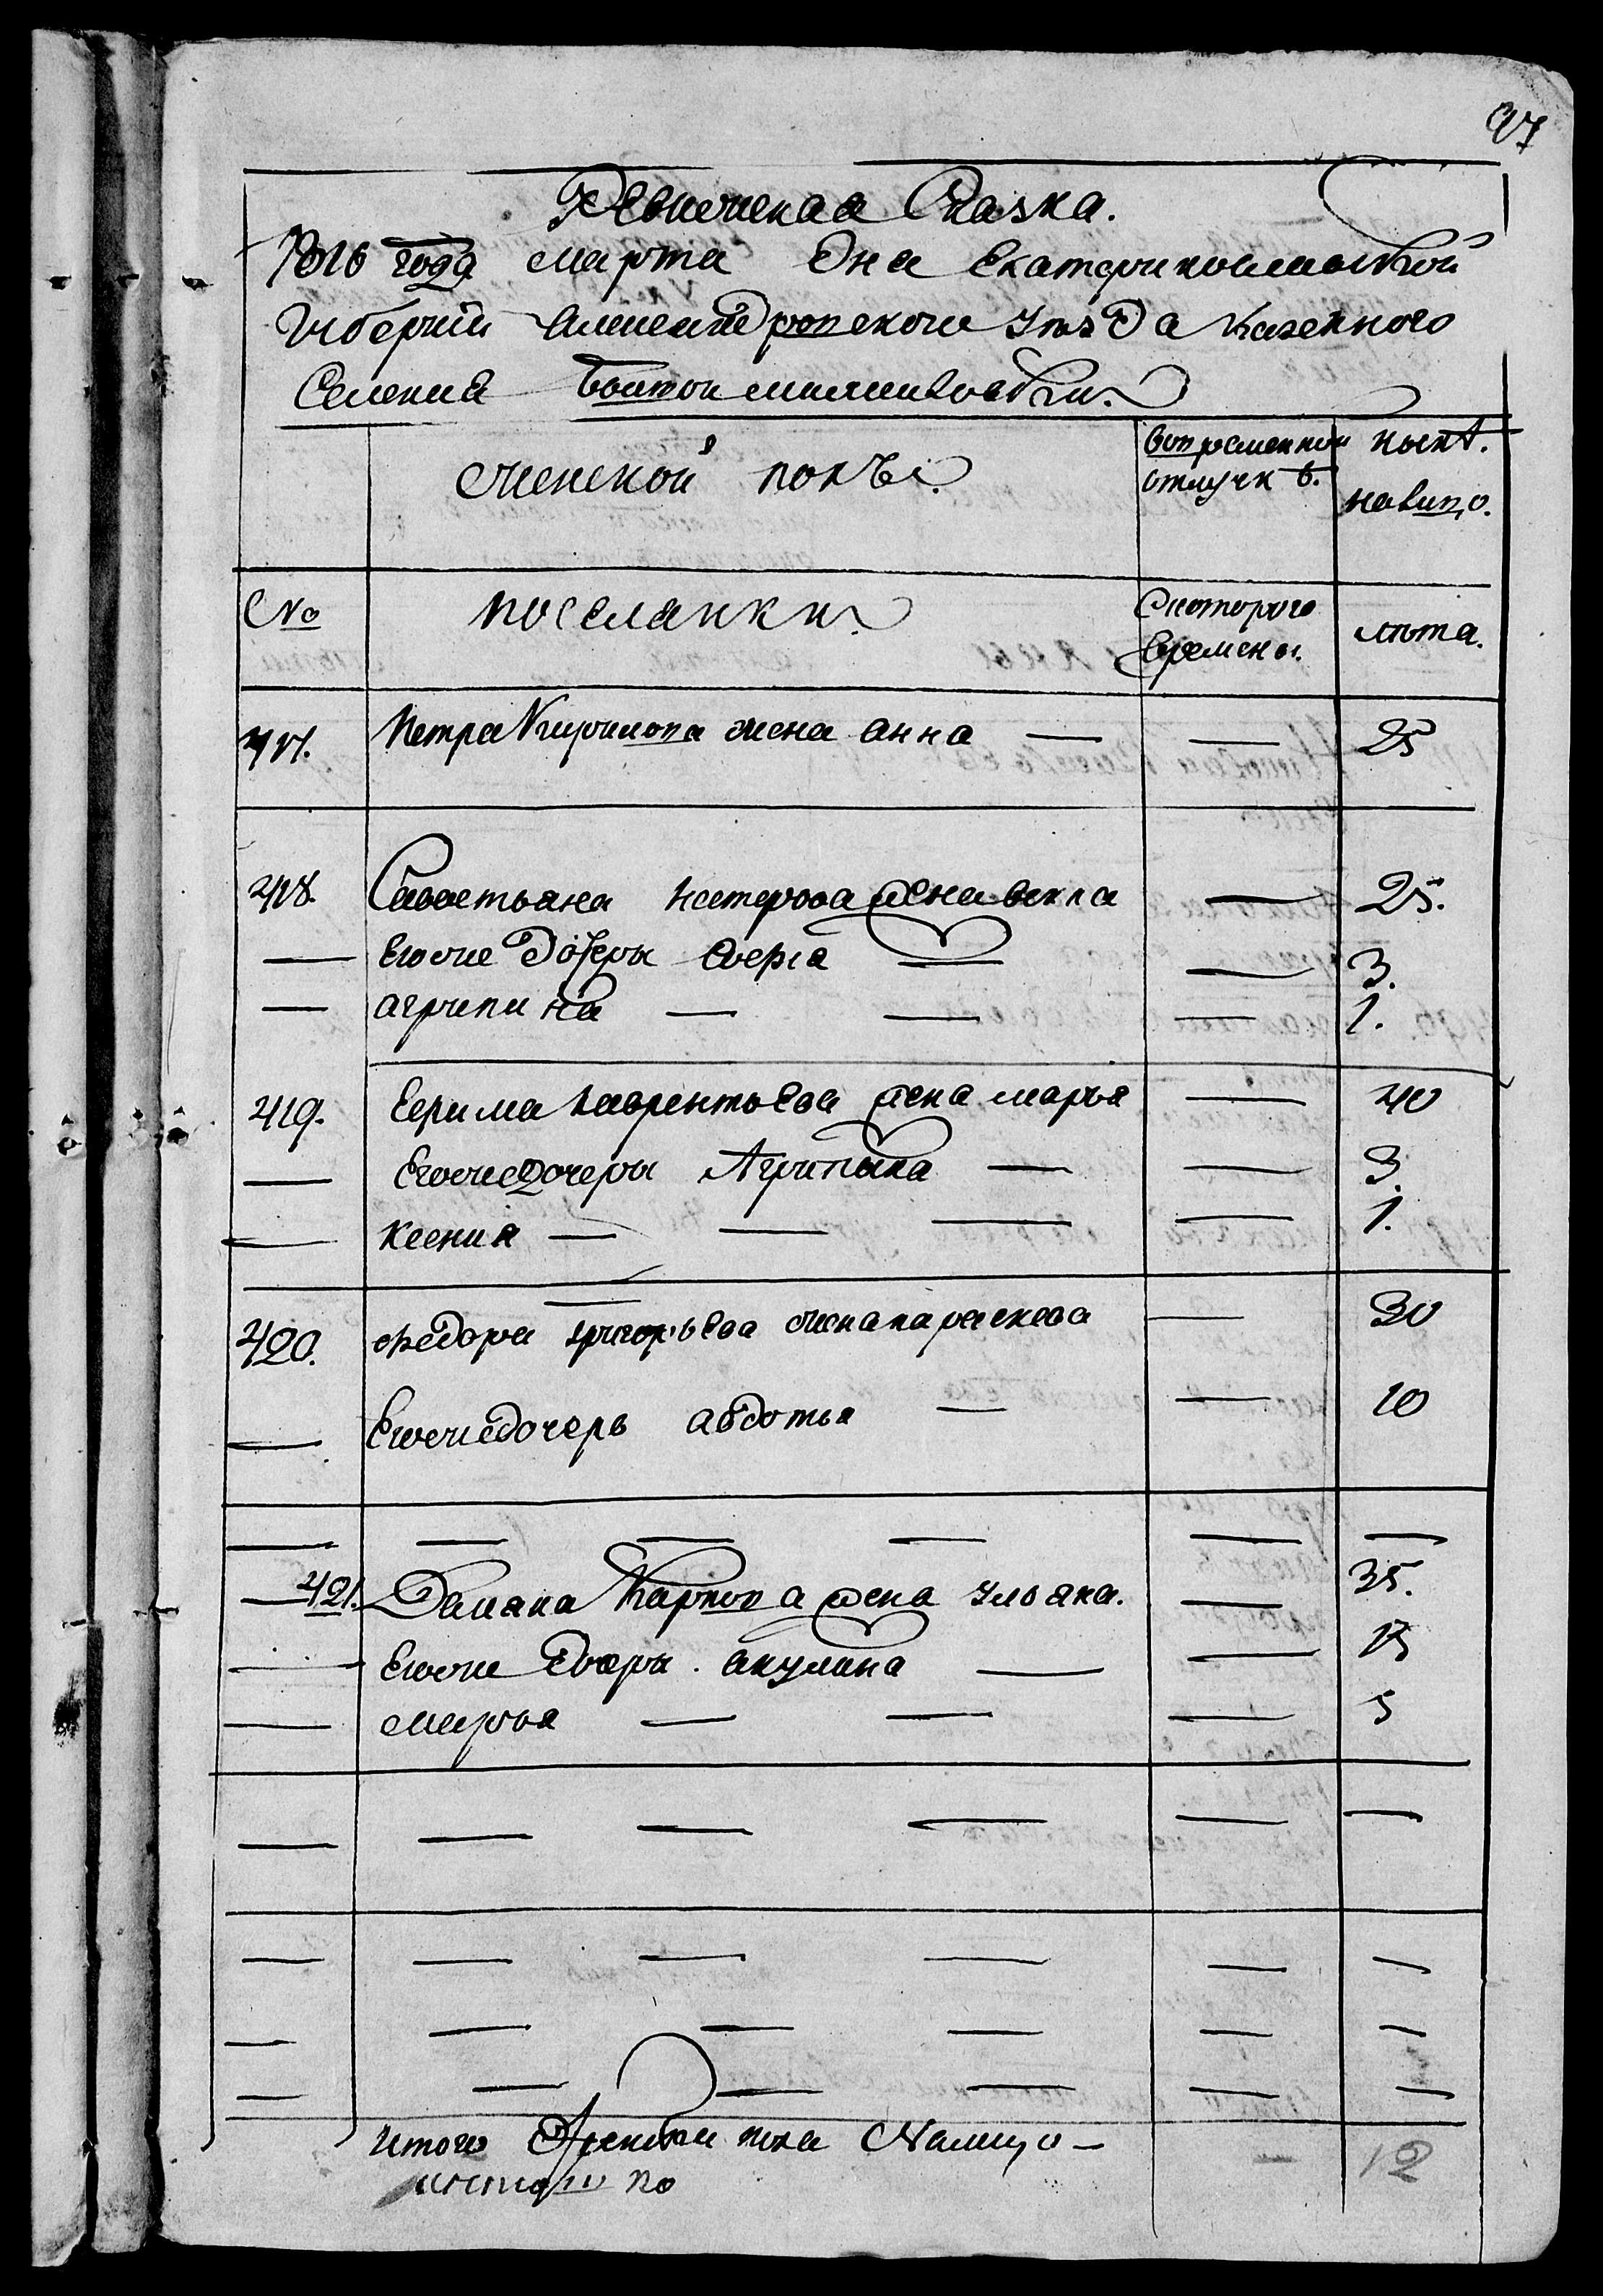 97
Ревижская Сказка.
1816 года марта дня Екатеринославской
Губернии Александровского уезда казенного
Селения
женской полъ.
вопременной отлучкѣ.
нынѣ налицо.
№
поселянки
Скоторого времены.
лѣта.
417. Петра Кирилопа жена анна — — 25
418. Савастьяна нестерова жена векла — 25.
— Егоже дочеры софия — — 3.
— агрипина — — — 1.
419. Ефима лаврентьева жена марья — 40
— Егожедочеры Агрипина — — 3.
— ксения — — — — 1.
420. федора григорьева женапараскева — 30
— Егожедочерь авдотья — — 10
— — — — — —
— 421. Дамяна Карпопа жена ульяна. — 35.
— Егоже дочеры. акулина — — 15
— марья — — — 5
— — — — — —
— — — — — —
— — — — — —
— — — — — —
итого женска пола Налицо — — 12